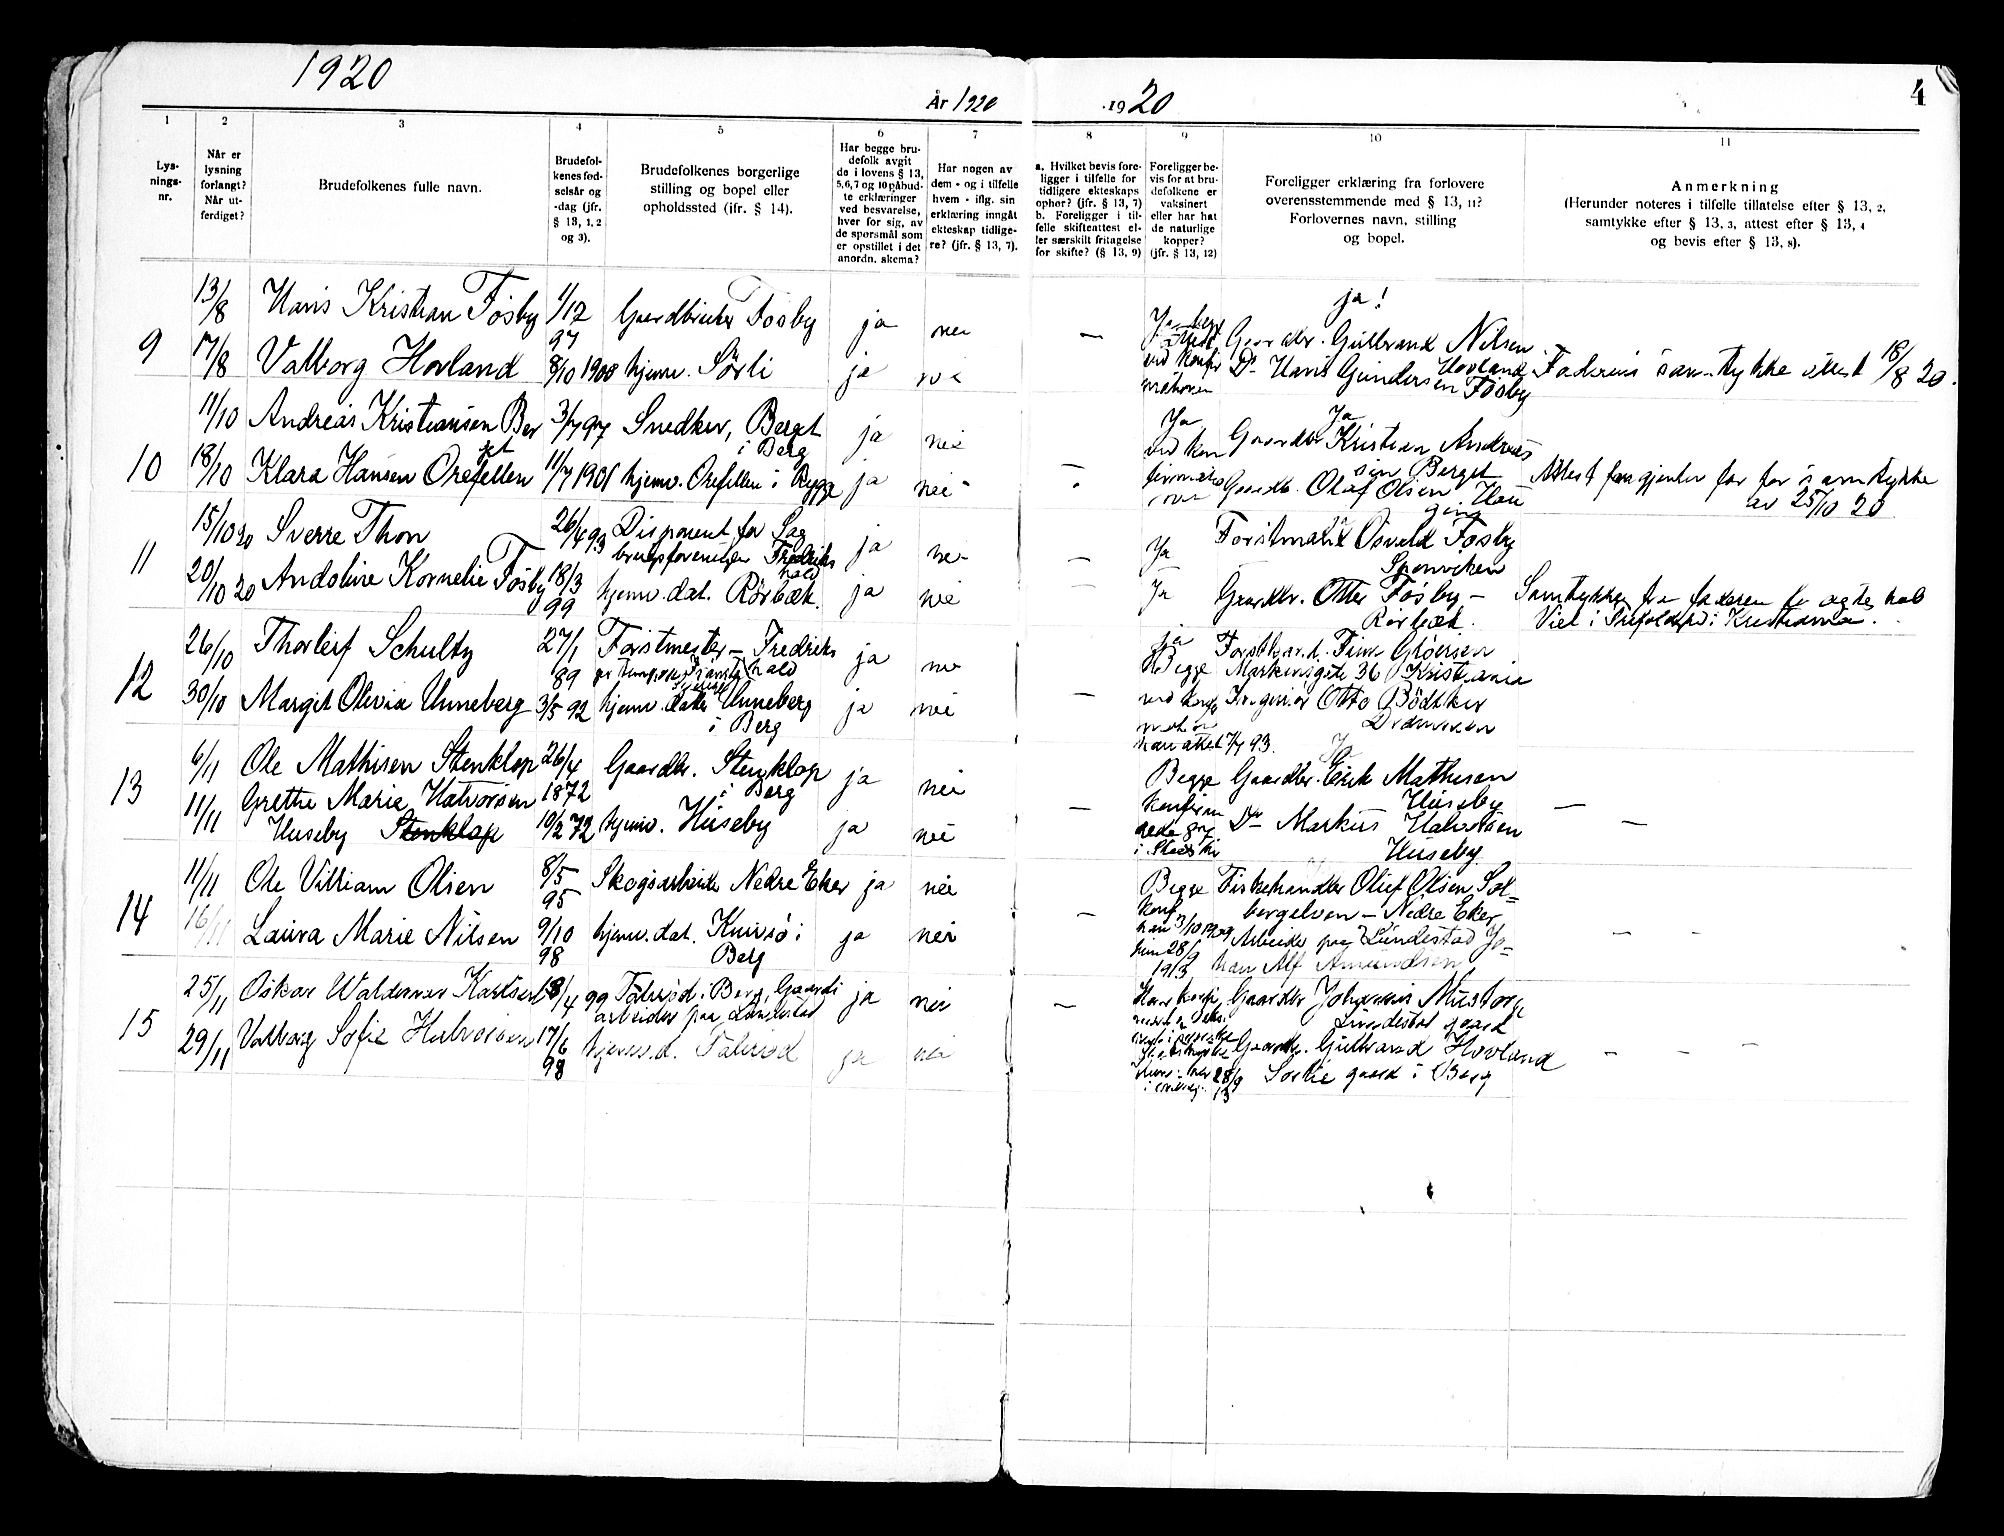 1920
År 1920
1920
4
1
2
3
4
5
6
7
8
9
10
11
Lys-
nings-
nr.
Når er
lysning
forlangt?
Når ut-
ferdiget?
Brudefolkenes fulle navn.
Brudefol-
kenes fød-
selsår og
-dag (jfr.
§ 13, 1, 2
og 3).
Brudefolkenes borgerlige
stilling og bopel eller
opholdssted (ifr. § 14).
Har begge bru-
defolk avgit
de i lovens § 13,
5,6,7 og 10 påbud-
te erklæringer
ved besvarelse,
hver for sig, av
de spørsmål som
er opstillet i det
anordn. skema?
Har nogen av
dem - og i tilfelle
hvem - iflg. sin
erklæring inngåt
ekteskap tidlige-
re? (jfr. § 13, 7).
a. Hvilket bevis fore-
ligger i tilfelle for
tidligere ekteskaps
ophør? (jfr. § 13, 7)
b. Foreligger i til-
felle skifteattest el-
ler særskilt fritagelse
for skifte? (§ 13, 9)
Foreligger be-
vis for at bru-
defolkene er
vaksinert
eller har hat
de naturlige
kopper?
(jfr. § 13, 12)
Foreligger erklæring fra forlovere
overensstemmende med § 13, 11?
Forlovernes navn, stilling
og bopel.
Anmerkning
(Herunder noteres i tilfelle tillatelse efter § 13, 2,
samtykke efter § 13, 3, attest efter § 13, 4
og bevis efter § 13, 8).
9
13/8 Hans Kristian Fosby 1/12 97 Gaardbruker Fosby ja nei
17/8 Valborg Hovland 8/10 1900 hjemv. Sörli ja nei
— ja!
Gaardbr. Gulbrand Nilsen
Hovland
Do Hans Gundersen Fosby
Faderens samtykke 18/8 20.
10
11/10 Andreas Kristiansen Ber
get 3/7 97 Snedker, Berget
i Berg ja nei
18/10 Klara Hansen Orefellen 11/7 1901 hjemv. Orefellen i Rygge ja nei
— Ja Ja
Gaardbr Kristian Andreas
sen Berget
Gaardb. Olaf Olsen
Attest samtykke
av 25/10 20
11
15/10 20 Sverre Thon 26/4 93 Disponent for Sag
brugsforeningen Fredriks
hald ja nei
20/10 20 Andoline Kornelie Fosby 18/3 99 hjemv. dat. Rörbæk. ja nei
— Ja
Ja
Osvald Fosby
Sponviken
Gaardbr. Otter Fosby —
Rörbæk.
Samtykke fra faderen
Viet i Kristiania.
12
26/10 Thorleif Schultz 27/1 89 Forstmester — Fredriks
hald ja nei
30/10 Margit Olivia Unneberg 3/5 92 hjemv. Unneberg
i Berg ja nei
— ja
Begge
Finn
Markveigate 36 Kristiania
Ingeniör Otto Bödtker
Drammen
13
6/11 Ole Mathisen Stenklop 26/4 1872 Gaardbr. Stenklop
i Berg ja nei
11/11 Grethe Marie Halvorsen
Huseby Stenklop 19/2 72 hjemv. Huseby ja nei
— Ja
Begge Gaardbr. Erik Mathisen
Huseby
Do Markus Halvorsen
Huseby
— —
14
11/11 Ole Villiam Olsen 8/5 95 Skogsarbeider Nedre Eker ja nei
16/11 Laura Marie Nilsen 9/10 98 hjemv. dat. Knivsö i
Berg ja nei
— Begge
konf.
han 3/10 1909
hun 28/9
1913
Fiskehandler Oluf Olsen Sol-
bergelven — Nedre Eker
Arbeider paa Lundestad Jo-
han Alf Amundsen
— —
15
25/11 Oskar Waldemar Karlsen 18/4 99 Torpene i Berg, Gaards
arbeider paa Lundestad ja nei
29/11 Valborg Sofie Halvorsen 17/6 98 hjemv. d. ja nei
—
28/9
13
Gaardbr Johannes
Lundestad gaard
Gaardbr. Gulbrand Hovland
Sörlie gaard i Berg
— — —